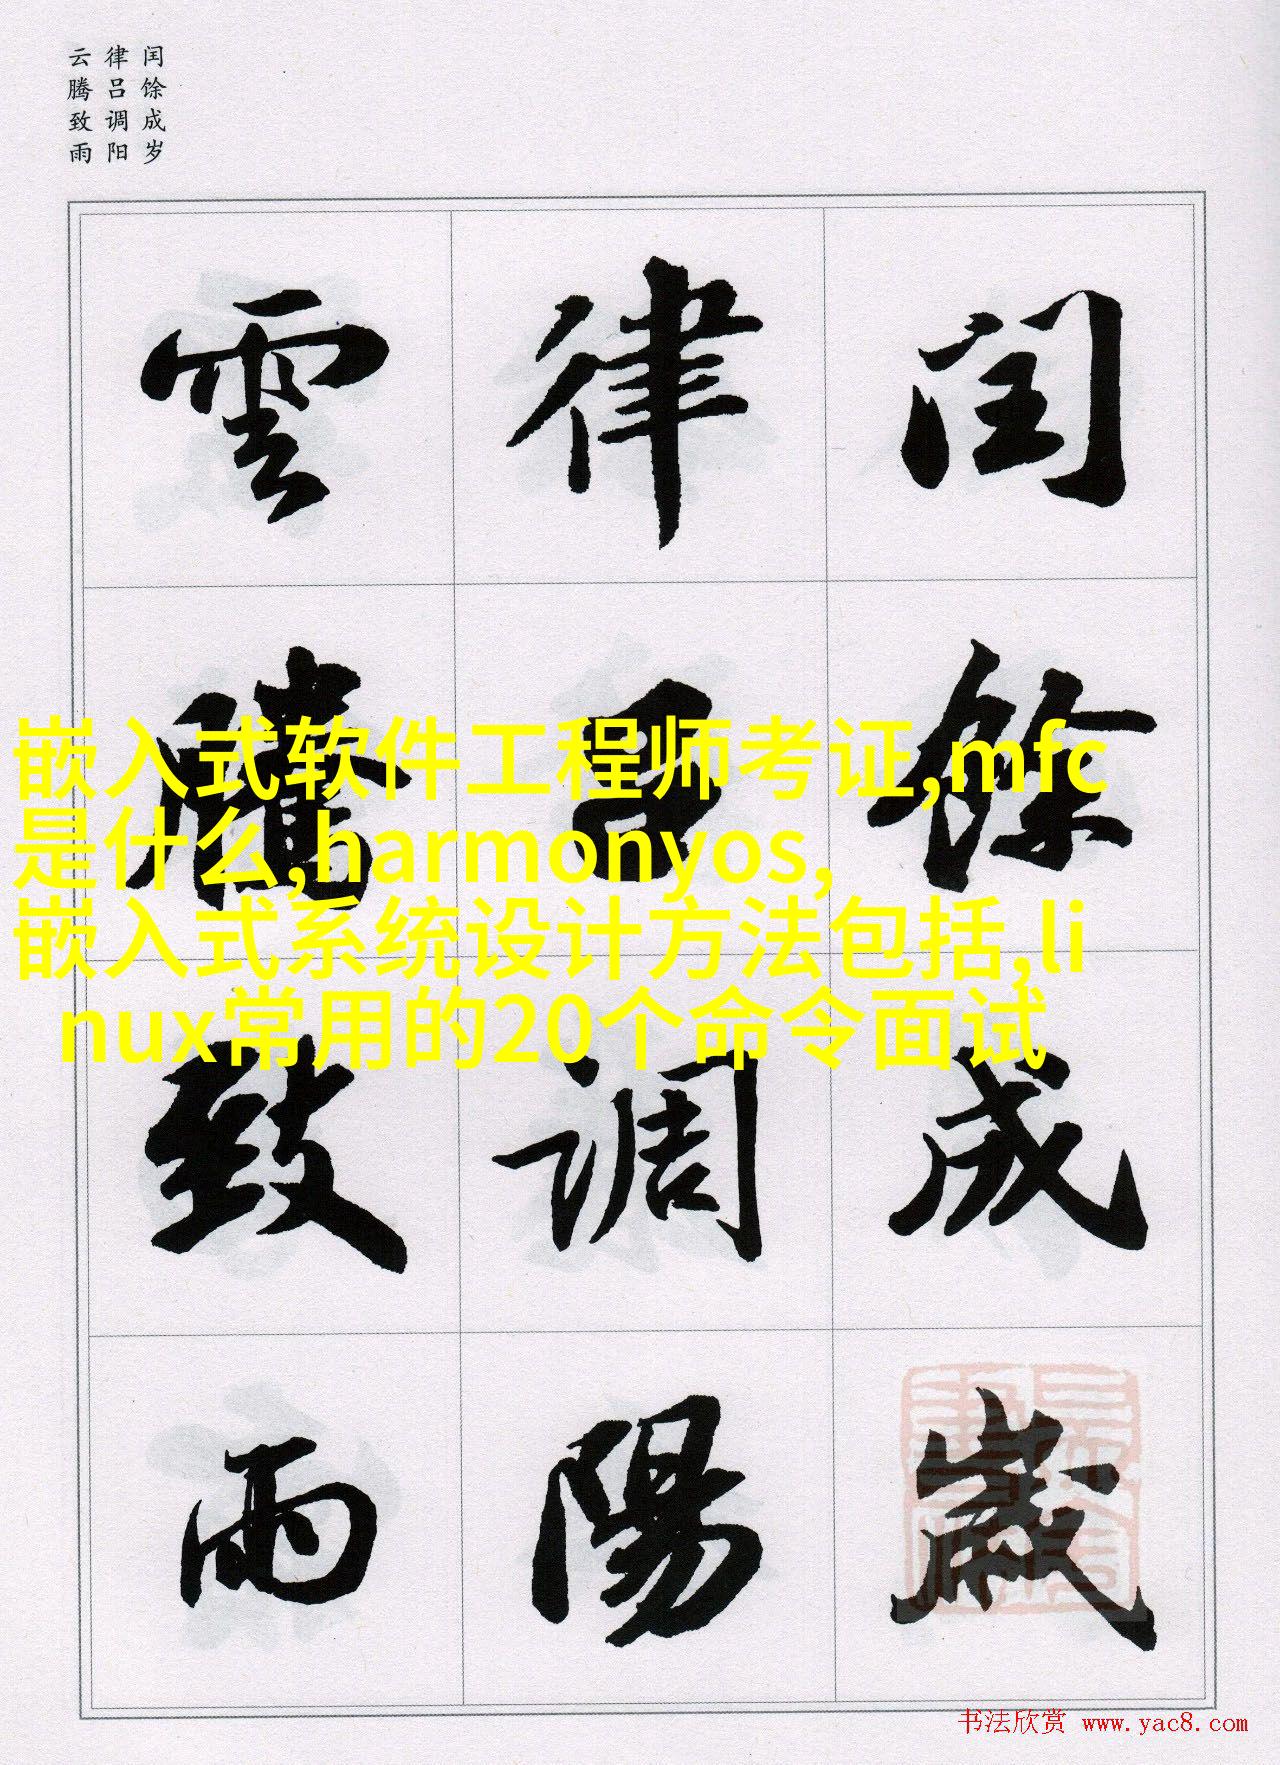 闰馀成岁
律吕调阳
云腾致雨
閏餘成歲
律吕調陽
雲騰致雨
嵌入式软件工程师考证,mfc
是什么,harmonyos,
嵌入式系统设计方法包括,li
nux常用的20个命令面试
书法欣赏 www.yac8.com